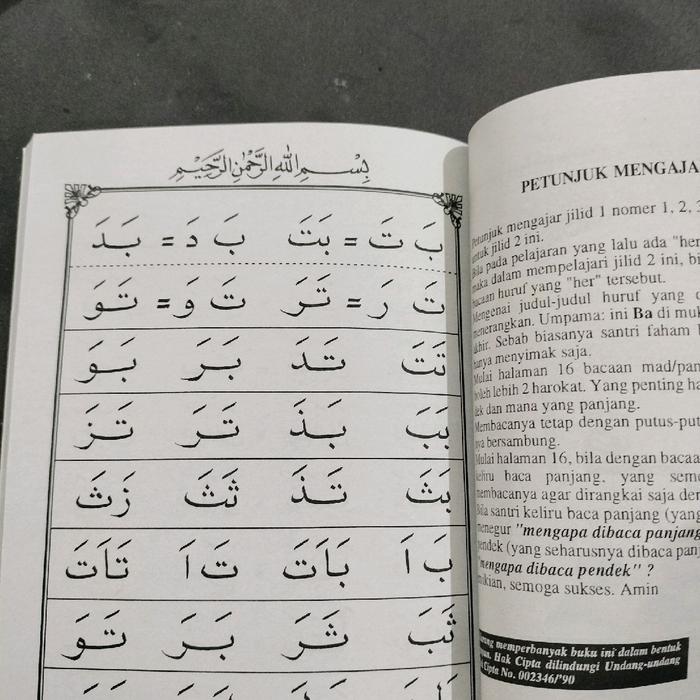 بِسْمِ اللهِ الرَّحْمٰنِ الرَّحِيْمِ
بَ تَ = بَتَ بَ دَ = بَدَ
تَ رَ = تَرَ تَ وَ = تَوَ
تَتَ تَدَ بَرَ بَوَ
بَبَ بَذَ تَرَ تَزَ
بَثَ تَذَ ثَثَ زَثَ
بَ اَ بَاَتَ تَ اَ تَاَتَ
ثَبَ ثَرَ بَرَ تَوَ
PETUNJUK MENGAJA
Petunjuk mengajar jilid 1 nomer 1, 2, 3
untuk jilid 2 ini.
Bila pada pelajaran yang lalu ada "her
maka dalam mempelajari jilid 2 ini, bi
bacaan huruf yang "her" tersebut.
Mengenai judul-judul huruf yang d
menerangkan. Umpama: ini Ba di muk
akhir. Sebab biasanya santri faham
hanya menyimak saja.
Mulai halaman 16 bacaan mad/pan
boleh lebih 2 harokat. Yang penting ha
dek dan mana yang panjang.
Membacanya tetap dengan putus-put
nya bersambung.
Mulai halaman 16, bila dengan bacaa
keliru baca panjang, yang sem
membacanya agar dirangkai saja der
Bila santri keliru baca panjang (yang
menegur "mengapa dibaca panjang
pendek (yang seharusnya dibaca panj
"mengapa dibaca pendek" ?
mikian, semoga sukses. Amin
arang memperbanyak buku ini dalam bentuk
Hak Cipta dilindungi Undang-undang
Cipta No. 002346/'90